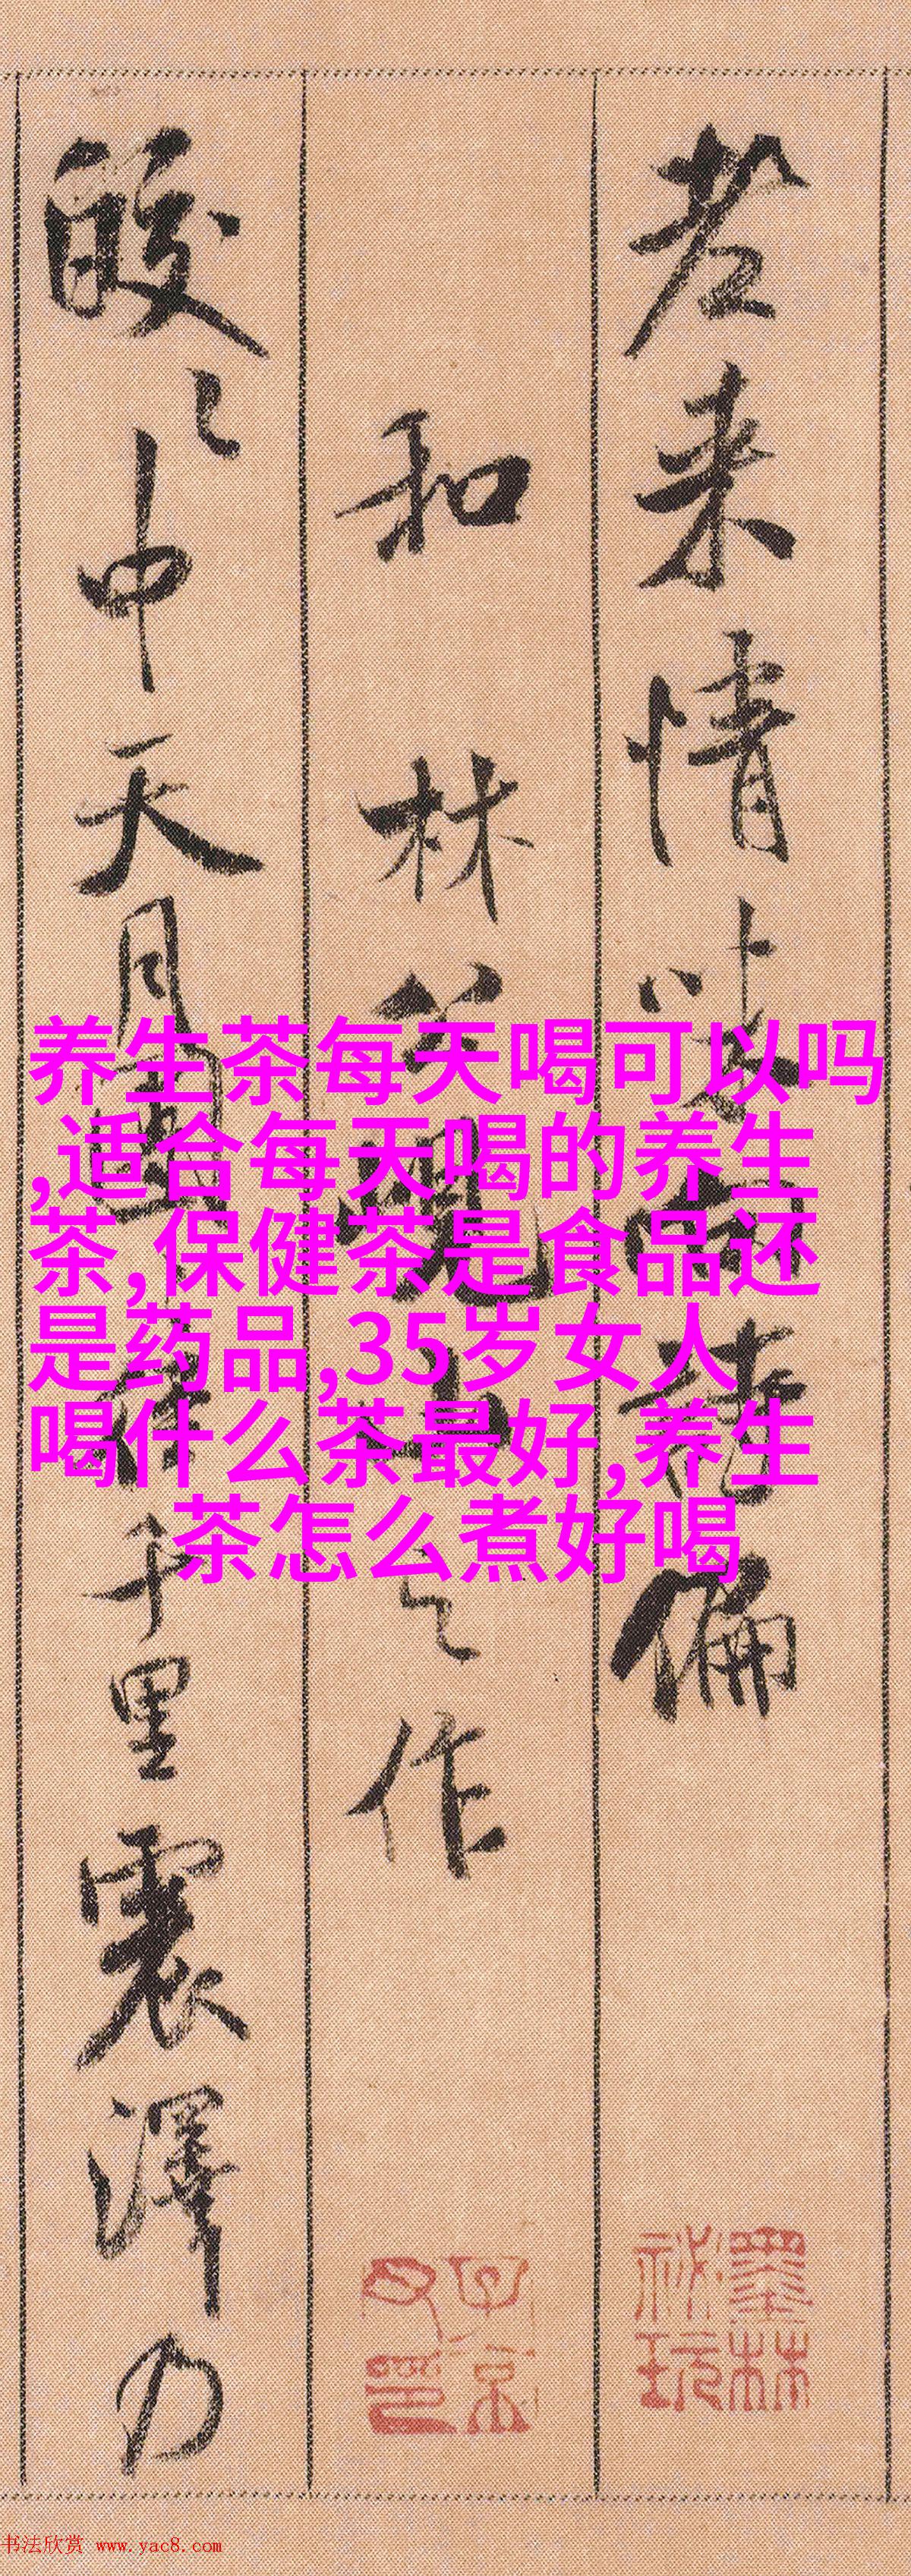 苍来情味向诗偏
和林公岘山之作
皎〻中天月团〻径千里震泽乃
养生茶每天喝可以吗
,适合每天喝的养生
茶,保健茶是食品还
是药品,35岁女人
喝什么茶最好,养生
茶怎么煮好喝
墨林秘玩
书法欣赏 www.yac8.com